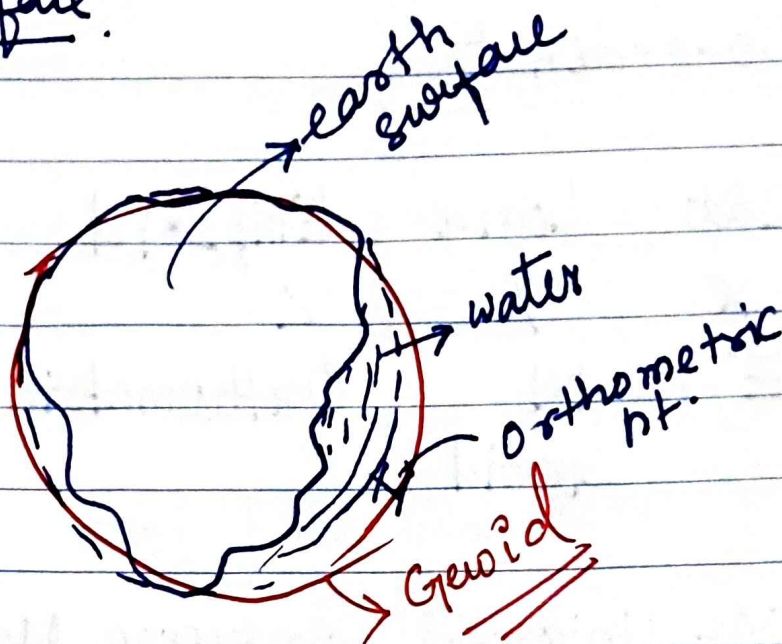 earth
surface
water
orthometric
ht.
Geoid